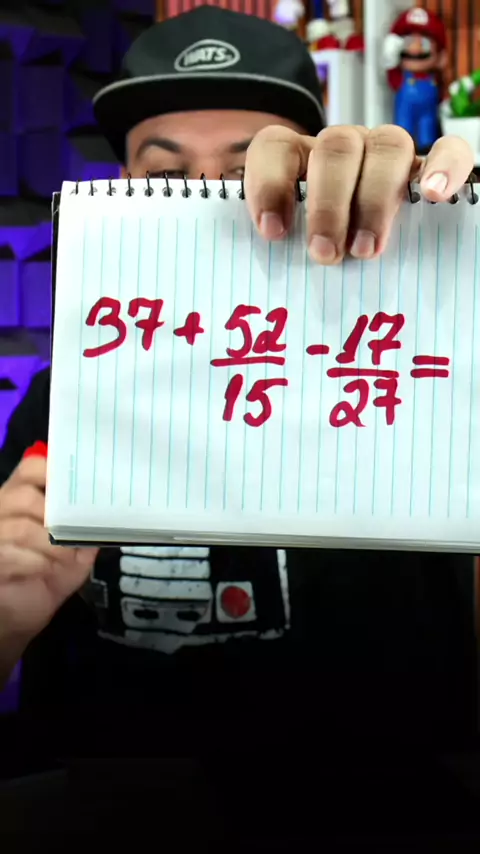 WATS
37 + 52/15 - 17/27 =